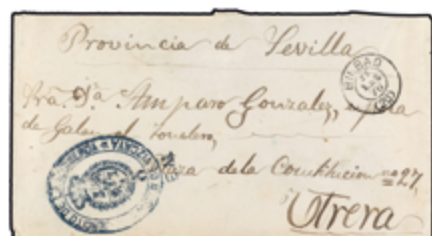 Provincia de Sevilla
BILBAO
Sra. Dª Amparo Gonzalez,
de Galan el tonelero,
Plaza de la Constitucion nº 27,
Utrera